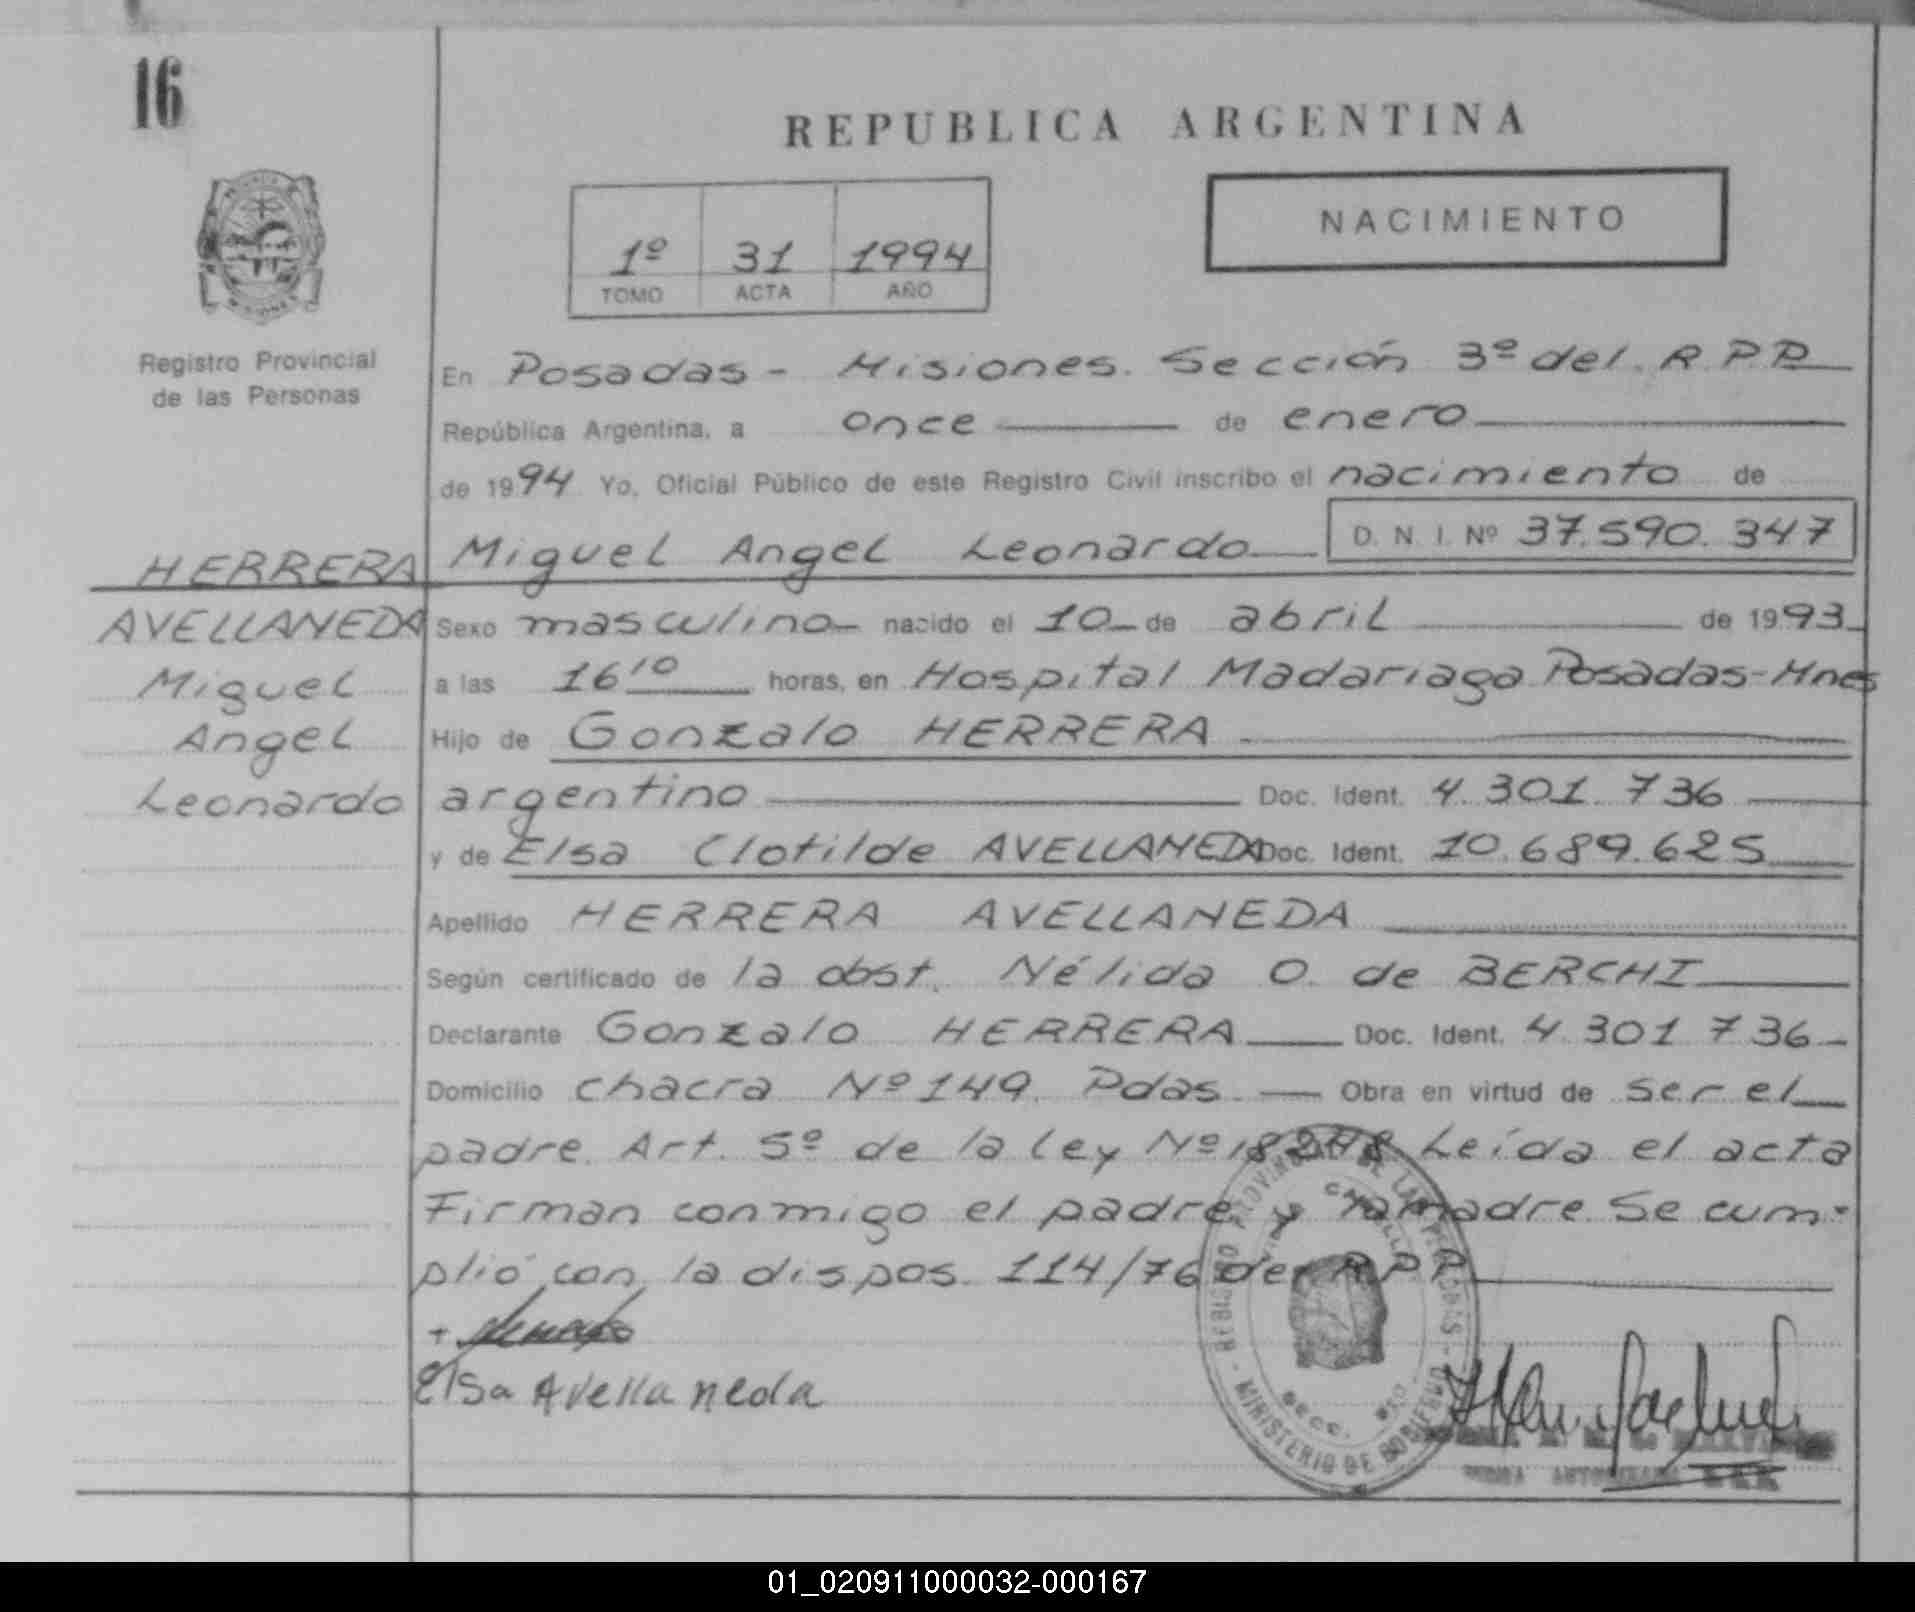 16
REPUBLICA ARGENTINA
NACIMIENTO
1º 31 1994
TOMO ACTA AÑO
Registro Provincial
de las Personas
En Posadas - Misiones. Sección 3º del R.P.P.
República Argentina, a once de enero
de 1994 Yo, Oficial Público de este Registro Civil inscribo el nacimiento de
Miguel Angel Leonardo D. N. I. Nº 37.590.347
HERRERA
AVELLANEDA
Miguel
Angel
Leonardo
Sexo masculino nacido el 10 de abril de 1993
a las 16 10 horas, en Hospital Madariaga Posadas-Mnes
Hijo de Gonzalo HERRERA
argentino Doc. Ident. 4.301.736
y de Elsa Clotilde AVELLANEDA Doc. Ident. 10.689.625
Apellido HERRERA AVELLANEDA
Según certificado de la obst. Nélida O. de BERCHI
Declarante Gonzalo HERRERA Doc. Ident. 4.301.736
Domicilio chacra Nº 149. Pdas. Obra en virtud de ser el
padre. Art. 5º de la ley Nº 18248 Leída el acta
Firman conmigo el padre y la madre. Se cum-
plió con la dispos. 114/76 del R.P.P.
Elsa Avellaneda
MINISTERIO DE GOBIERNO
01_020911000032-000167